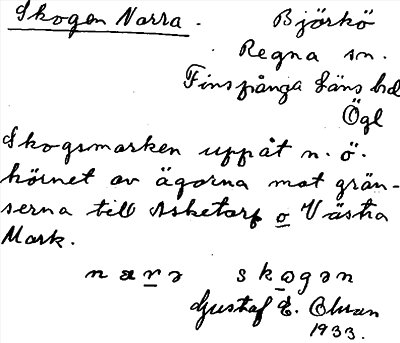 Skogen Norra. Björkö
Regna sn.
Finspånga Läns hd
Ögl
Skogsmarken uppåt n. ö.
hörnet av ägorna mot grän-
serna till Asketorp o Västra
Mark.
næra skogən
Gustaf E. Olson
1933.